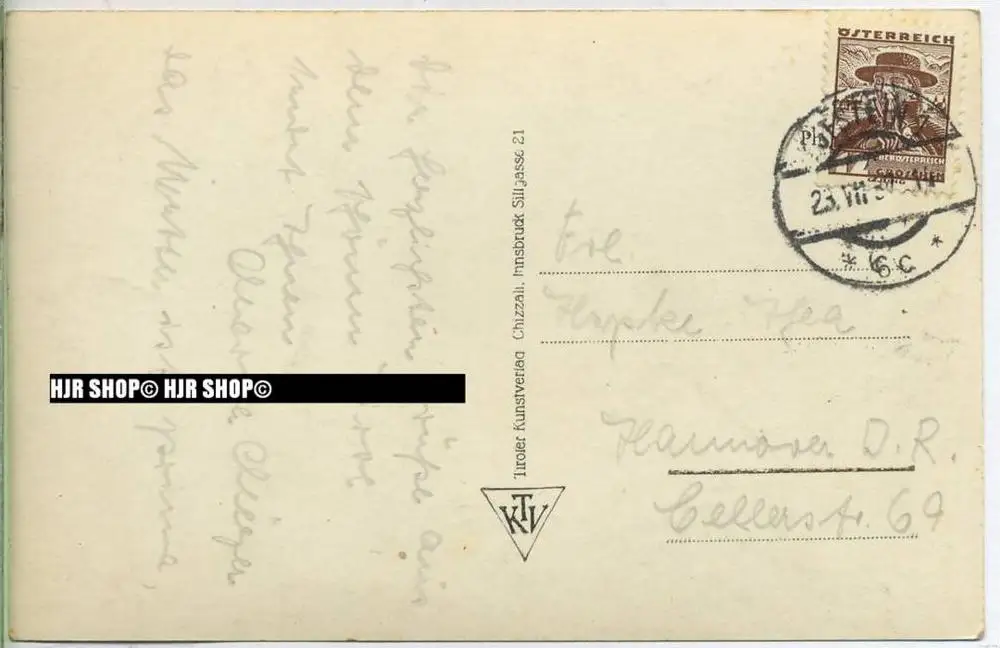 Die herzlichsten Grüße aus
dem schönen Tirol
sendet Ihnen
Das Wetter ist prima,
HJR SHOP© HJR SHOP©
Tiroler Kunstverlag Chizzali, Innsbruck Sillgasse 21
KTV
ÖSTERREICH
OBERÖSTERREICH
GROSCHEN
23.VII
* 6c *
Frl.
Hannover D.R.
Cellerstr. 69